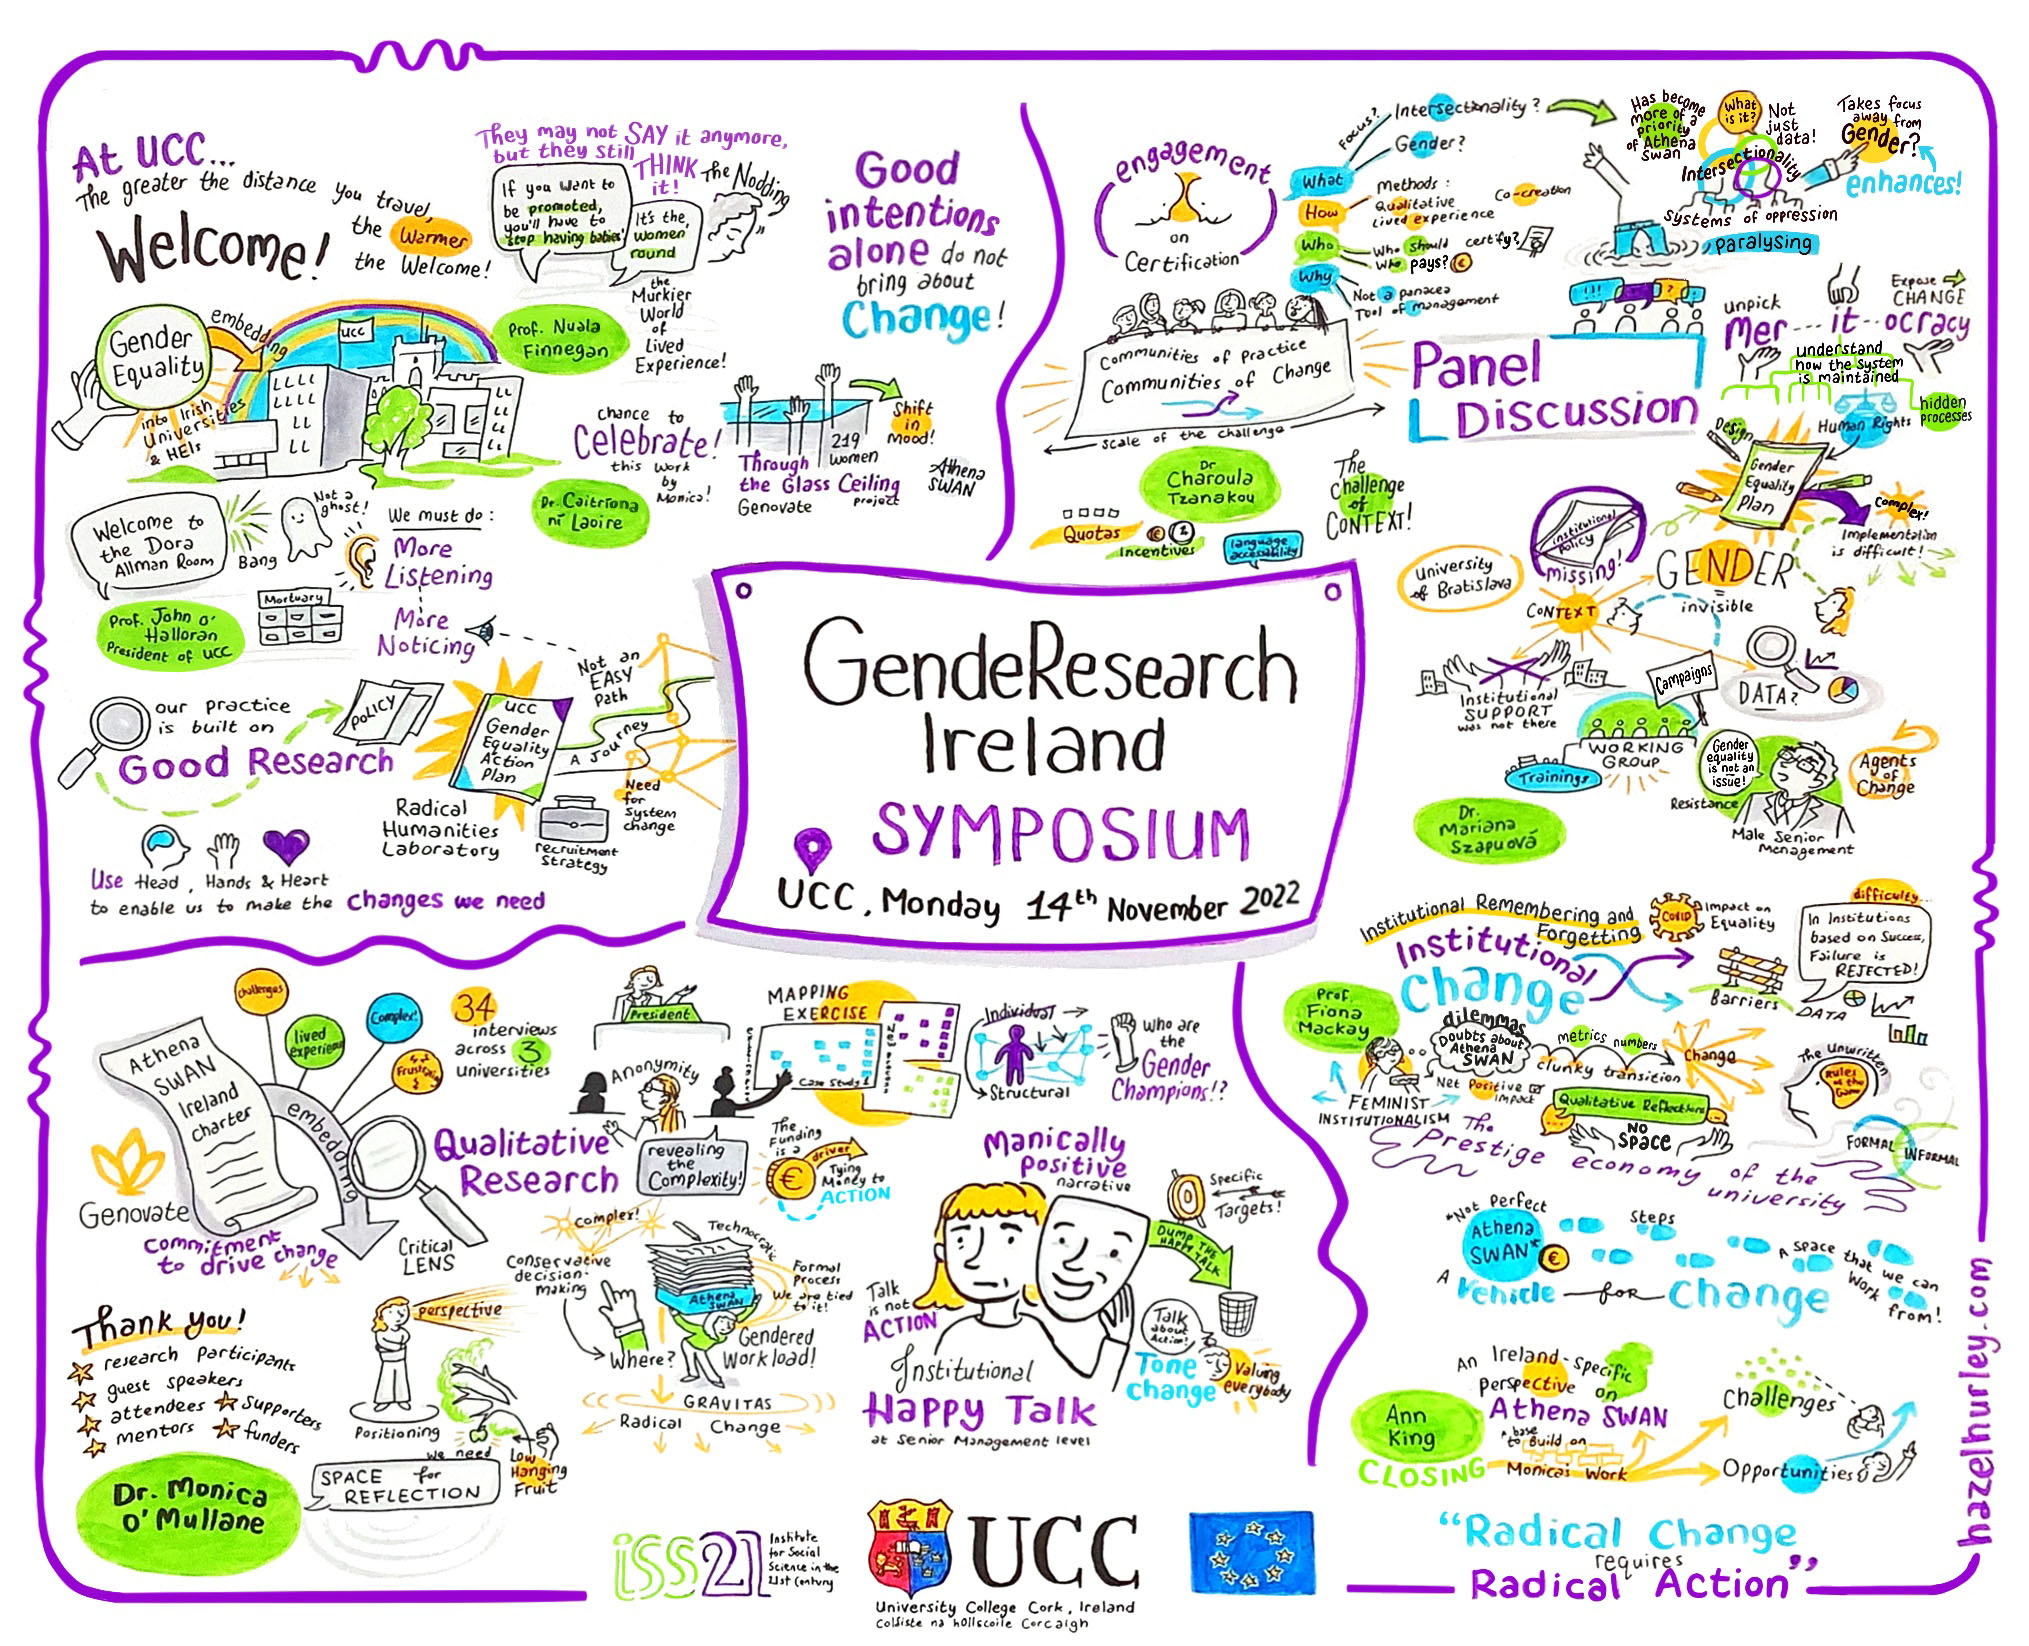 At UCC...
The greater the distance you travel,
the Warmer
the Welcome!
Welcome!
They may not SAY it anymore,
but they still THINK
it!
If you want to
be promoted,
you'll have to
stop having babies'
It's the
'women'
round
The Nodding
Good
intentions
alone do not
bring about
Change!
Gender
Equality
embedding
into Irish
Universities
& HEIs
UCC
Prof. Nuala
Finnegan
the
Murkier
World
of
Lived
Experience!
chance to
Celebrate!
this work
by
Monica!
Dr. Caitríona
ní Laoire
219
women
Through
the Glass Ceiling
project
Genovate
Shift
in
Mood!
Athena
SWAN
Welcome to
the Dora
Allman Room
Bang
Not a
ghost!
We must do:
More
Listening
More
Noticing
Mortuary
Prof. John O'
Halloran
President of UCC
our practice
is built on
Good Research
POLICY
UCC
Gender
Equality
Action
Plan
Not an
EASY
Path
A Journey
Need
for
System
change
Radical
Humanities
Laboratory
recruitment
Strategy
Use Head, Hands & Heart
to enable us to make the changes we need
engagement
on
Certification
What
How
Who
Why
Focus?
Intersectionality?
Gender?
Methods:
Qualitative
Lived experience
Co-creation
Who should certify?
who pays? €
Not a panacea
Tool of management
Has become
more of a
priority
of Athena
Swan
What
is it?
Not
just
data!
Intersectionality
Takes focus
away from
Gender?
enhances!
Systems of oppression
paralysing
Communities of Practice
Communities of Change
scale of the challenge
Panel
Discussion
!!!
?
unpick
Mer---it--ocracy
Expose
CHANGE
understand
how the System
is maintained
hidden
processes
Human Rights
Dr
Charoula
Tzanakou
Quotas
Incentives
€
language
accessibility
The
Challenge
of
CONTEXT!
Design
Gender
Equality
Plan
Complex!
Implementation
is difficult!
institutional
policy
missing!
University
of Bratislava
GENDER
=
invisible
CONTEXT
Institutional
SUPPORT
was not there
Campaigns
DATA?
WORKING
GROUP
Trainings
Gender
equality
is not an
issue!
Resistance
Male Senior
Management
Agents
of
Change
Dr.
Mariana
Szapuová
GendeResearch
Ireland
SYMPOSIUM
UCC, Monday 14th November 2022
Athena
SWAN
Ireland
Charter
embedding
challenges
lived
experience
Complex!
34
interviews
across 3
universities
Genovate
Commitment
to drive change
Critical
LENS
Qualitative
Research
President
Anonymity
revealing
the
Complexity!
MAPPING
EXERCISE
Case Study 1
Individual
Structural
Who are
the
Gender
Champions!?
The
Funding
is a
driver
€
Tying
Money to
ACTION
complex!
Conservative
decision-
making
Where?
Technocratic
Athena
SWAN
Formal
Process
We are tied
to it!
Gendered
Workload!
GRAVITAS
Radical Change
Manically
positive
narrative
Specific
Targets!
DUMP THE
HAPPY TALK
Talk
is not
ACTION
Talk
about
Action!
Tone
change
Valuing
everybody
Institutional
Happy Talk
at Senior Management level
Thank you!
research participants
guest speakers
attendees
Supporters
mentors
funders
perspective
Positioning
we need
SPACE for
REFLECTION
Low
Hanging
Fruit
Dr. Monica
O'Mullane
Institutional Remembering and
Forgetting
Institutional
Change
COVID
Impact on
Equality
difficulty...
In Institutions
based on Success,
Failure is
REJECTED!
Barriers
DATA
Prof.
Fiona
Mackay
dilemmas
Doubts about
Athena
SWAN
metrics numbers
clunky transition
Change
Net Positive
impact
FEMINIST
INSTITUTIONALISM
Qualitative Reflections
NO
SPACE
The Unwritten
Rules
of the
Game
FORMAL
INFORMAL
The
Prestige economy of the
university
*Not Perfect
Athena
SWAN*
€
Steps
A space that we can
work from!
A
Vehicle for Change
An Ireland-specific
perspective on
Athena SWAN
Ann
King
CLOSING
A base
to Build on
Monica's Work
Challenges
Opportunities
"Radical Change
requires
Radical Action"
iSS21
Institute
for Social
Science in the
21st Century
UCC
University College Cork, Ireland
Coláiste na hOllscoile Corcaigh
hazelhurley.com